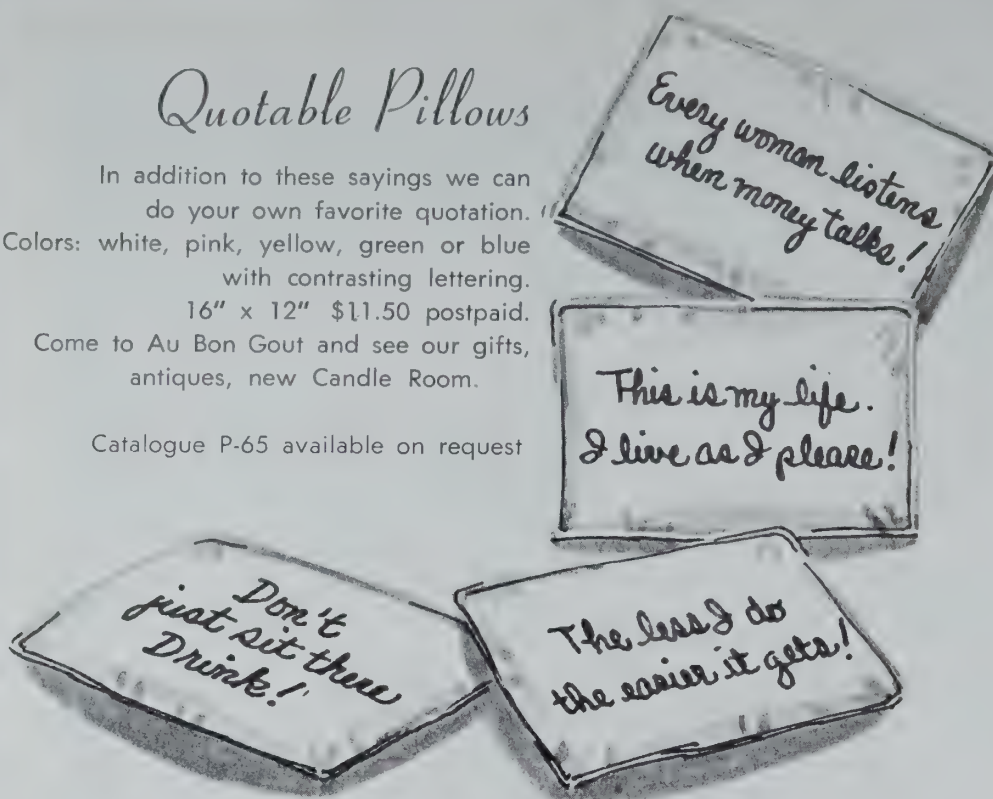 Quotable Pillows
In addition to these sayings we can
do your own favorite quotation.
Colors: white, pink, yellow, green or blue
with contrasting lettering.
16" x 12" $11.50 postpaid.
Come to Au Bon Gout and see our gifts,
antiques, new Candle Room.
Catalogue P-65 available on request
Every woman listens
when money talks!
This is my life.
I live as I please!
Don't
just sit there
Drink!
The less I do
the easier it gets!